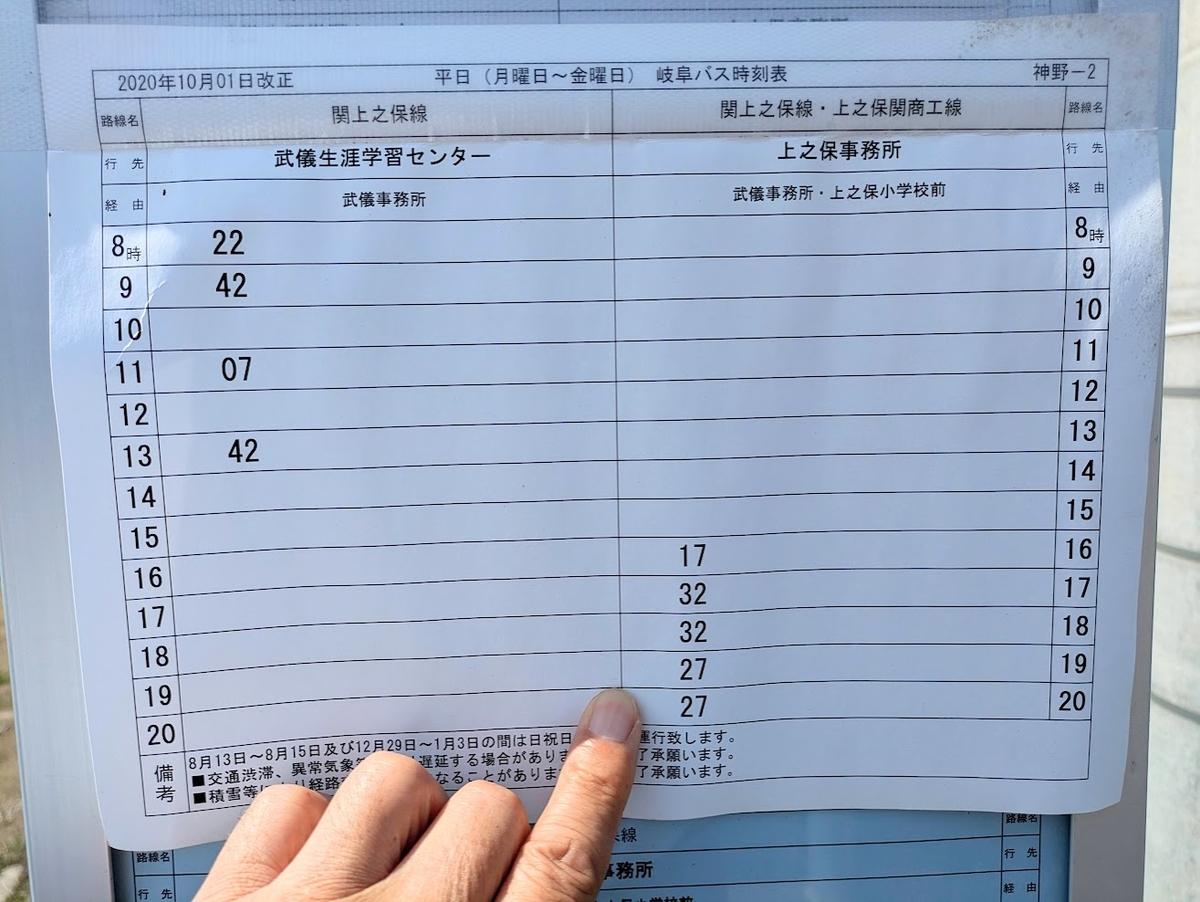 2020年10月01日改正 平日（月曜日～金曜日） 岐阜バス時刻表 神野－2
路線名 関上之保線 関上之保線・上之保関商工線 路線名
行 先 武儀生涯学習センター 上之保事務所 行 先
経 由 武儀事務所 武儀事務所・上之保小学校前 経 由
8時 22 8時
9 42 9
10 10
11 07 11
12 12
13 42 13
14 14
15 15
16 17 16
17 32 17
18 32 18
19 27 19
20 27 20
備考 8月13日～8月15日及び12月29日～1月3日の間は日祝日 運行致します。
■交通渋滞、異常気象 遅延する場合がありま 了承願います。
■積雪等により経路 なることがありま 了承願います。
路線名 線 路線名
行 先 事務所 行 先
経 由 経 由